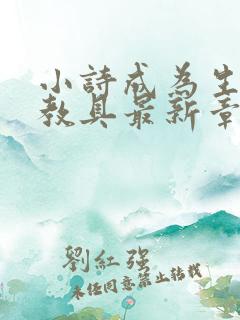 小詩戒為生
教具最新章
劉紅强
未经同意禁止转载